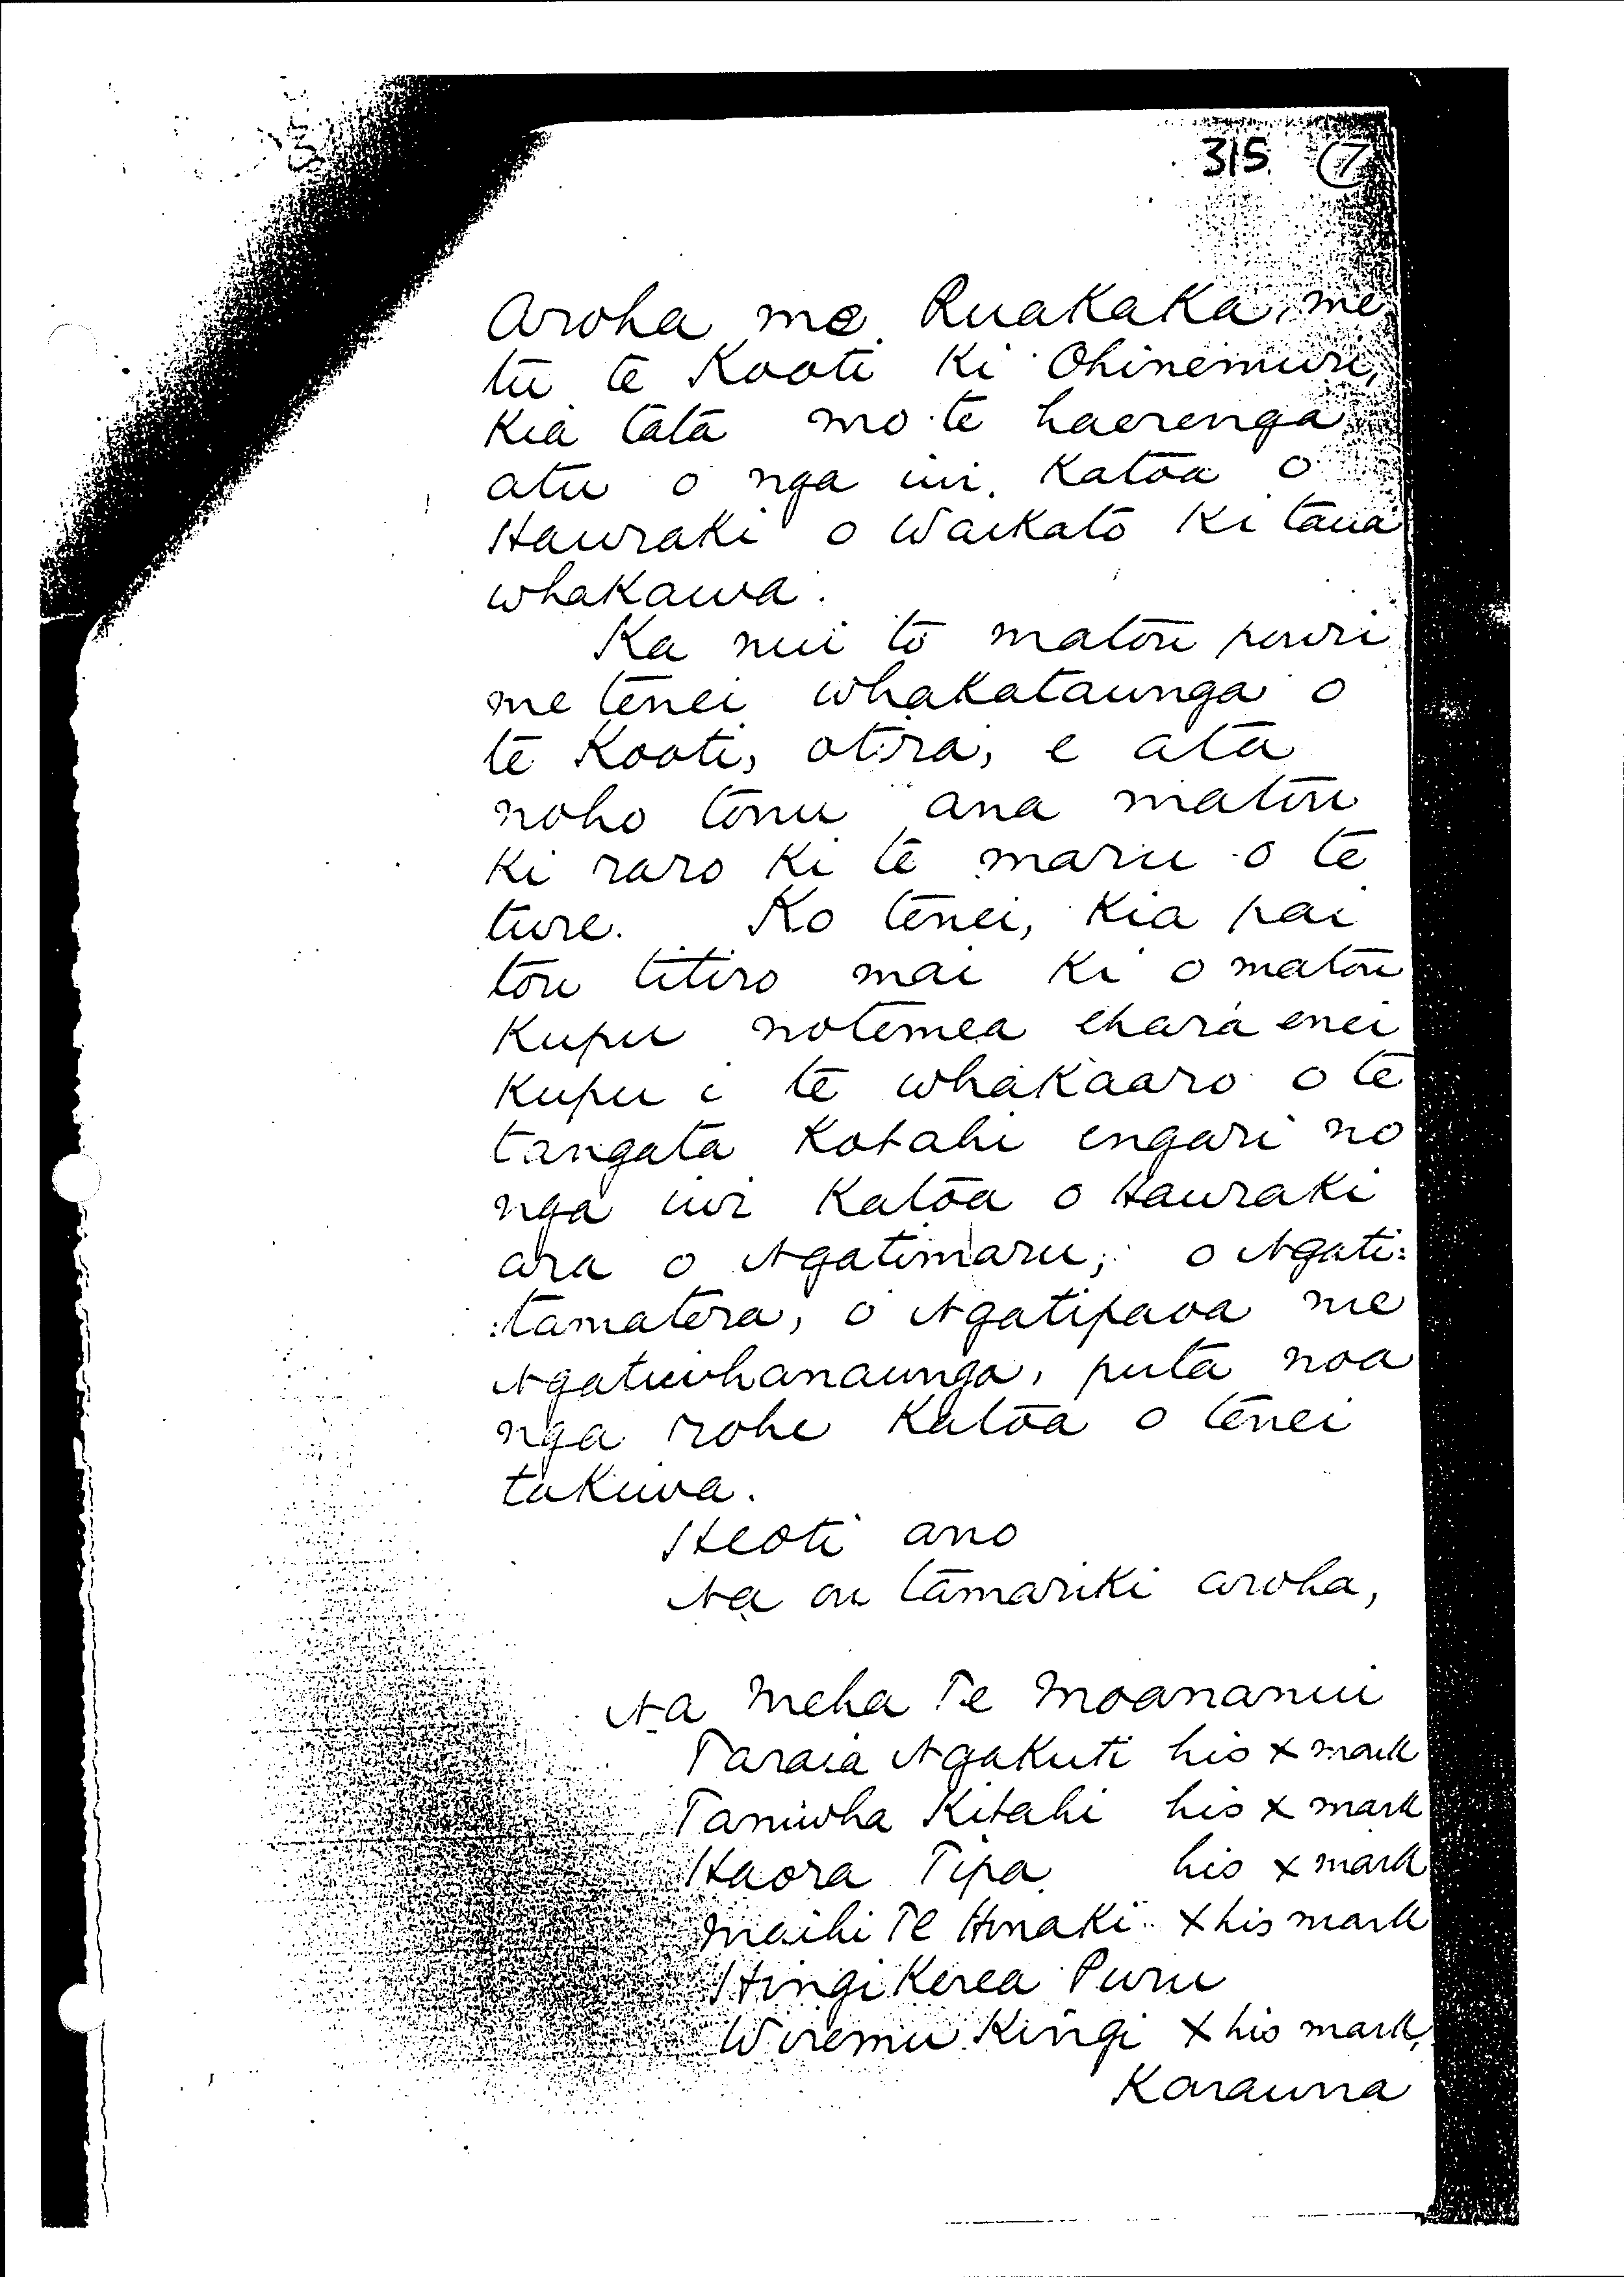 315. 7
Aroha me Ruakaka, me
tu te Kooti Ki Ohinemuri,
Kia tata mo te haerenga
atu o nga iwi Katoa o
Hauraki o Waikato Ki taua
whakawa.
Ka nui to matou pouri
me tenei whakataunga o
te Kooti, otira, e ata
noho tonu ana matou
Ki raro Ki te maru o te
ture. Ko tenei, Kia pai
tou titiro mai Ki o matou
Kupu notemea ehara enei
Kupu i te whakaaro o te
tangata Kotahi engari no
nga iwi Katoa o Hauraki
ara o Ngatimaru, o Ngati:
:tamatera, o Ngatipaoa me
Ngatiwhanaunga, puta noa
nga rohe Katoa o tenei
takiwa.
Heoti ano
Na ou tamariki aroha,
Na Meha Te Moananui
Taraia Ngakuti his x mark
Taniwha Kitahi his x mark
Haora Tipa his x mark
Maihi Te Hinaki x his mark
Hingi Kerea Puru
Wiremu Kingi x his mark,
Karauna